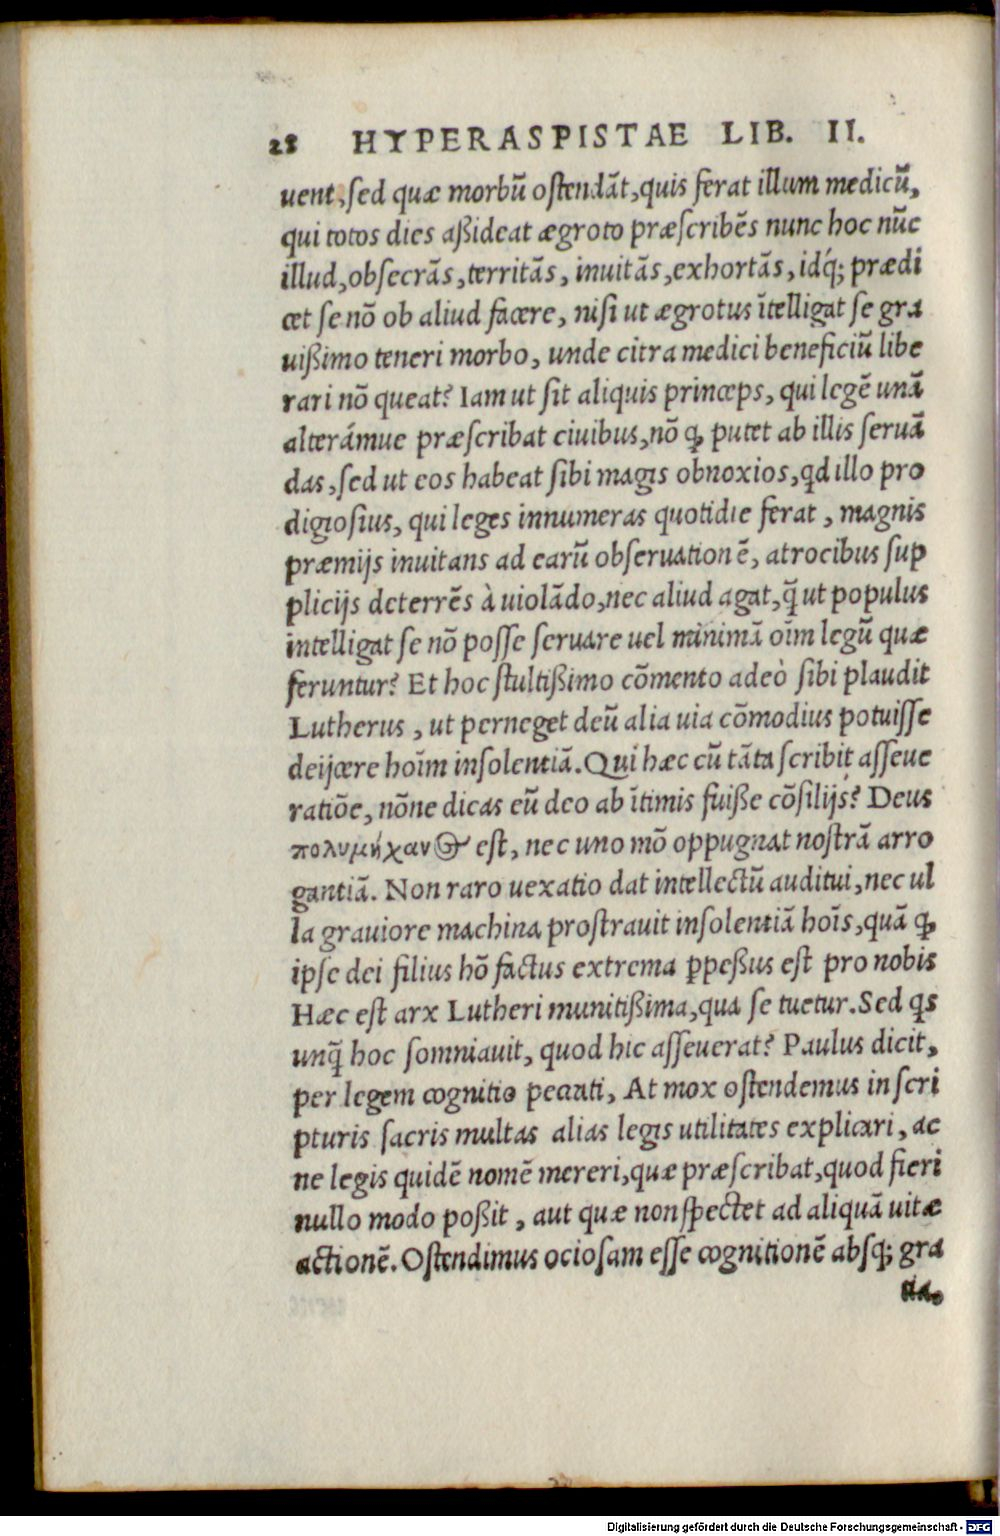 28 HYPERASPISTAE LIB. II.
uent, sed quæ morbũ ostendãt, quis ferat illum medicũ,
qui totos dies aßideat ægroto præscribẽs nunc hoc nũc
illud, obsecrãs, territãs, inuitãs, exhortãs, idq́; prædi
cet se nõ ob aliud facere, nisi ut ægrotus ĩtelligat se gra
uißimo teneri morbo, unde citra medici beneficiũ libe
rari nõ queat? Iam ut sit aliquis princeps, qui legẽ unã
alterámue præscribat ciuibus, nõ ꝙ putet ab illis seruã
das, sed ut eos habeat sibi magis obnoxios, qd illo pro
digiosius, qui leges innumeras quotidie ferat, magnis
præmijs inuitans ad earũ obseruationẽ, atrocibus sup
plicijs deterrẽs à uiolãdo, nec aliud agat, q̃ ut populus
intelligat se nõ posse seruare uel minimã oĩm legũ quæ
feruntur? Et hoc stultißimo cõmento adeò sibi plaudit
Lutherus, ut perneget deũ alia uia cõmodius potuisse
deijcere hoĩm insolentiã. Qui hæc cũ tãta scribit asseue
ratiõe, nõne dicas eũ deo ab ĩtimis fuiße cõsilijs? Deus
πολυμήχανος est, nec uno mõ oppugnat nostrã arro
gantiã. Non raro uexatio dat intellectũ auditui, nec ul
la grauiore machina prostrauit insolentiã hoĩs, quã ꝙ
ipse dei filius hõ factus extrema ꝑpeßus est pro nobis
Hæc est arx Lutheri munitißima, qua se tuetur. Sed qs
unq̃ hoc somniauit, quod hic asseuerat? Paulus dicit,
per legem cognitio peccati, At mox ostendemus in scri
pturis sacris multas alias legis utilitates explicari, ac
ne legis quidẽ nomẽ mereri, quæ præscribat, quod fieri
nullo modo poßit, aut quæ non spectet ad aliquã uitæ
actionẽ. Ostendimus ociosam esse cognitionẽ absq; gra
tia,
Digitalisierung gefördert durch die Deutsche Forschungsgemeinschaft - DFG